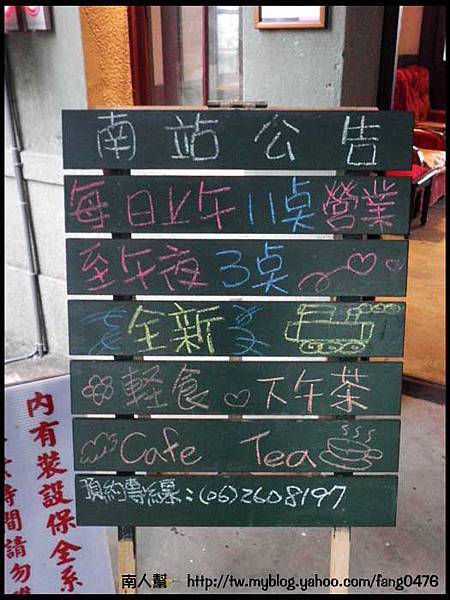 南站公告
每日上午11点營業
至午夜3点
全新
輕食 下午茶
Cafe Tea
預約專線：(06)2608197
內有裝設保全系
時間請勿
南人幫 http://tw.myblog.yahoo.com/fang0476